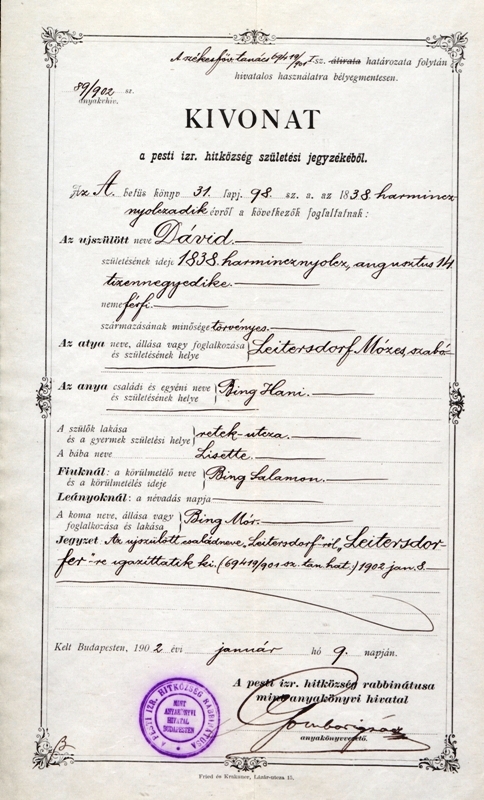 A székesfőv. tanács 69419/901 I sz. átirata határozata folytán
hivatalos használatra bélyegmentesen.
89/902 sz.
anyakhiv.
KIVONAT
a pesti izr. hitközség születési jegyzékéből.
Az A. betüs könyv 31. lapj. 98. sz. a. az 1838 harmincz-
nyolczadik évről a következők foglaltatnak:
Az ujszülött neve Dávid.
születésének ideje 1838. harmincznyolcz, augusztus 14
tizennegyedike.
neme férfi.
származásának minősége törvényes.
Az atya neve, állása vagy foglalkozása és születésének helye Leitersdorf Mózes, szabó
Az anya családi és egyéni neve és születésének helye Bing Hani.
A szülők lakása és a gyermek születési helye retek-utcza.
A bába neve Lisette.
Fiuknál: a körülmetélő neve és a körülmetélés ideje Bing Salamon.
Leányoknál: a névadás napja
A koma neve, állása vagy foglalkozása és lakása Bing Mór.
Jegyzet. Az ujszülött családneve „Leitersdorf"-ról „Leitersdor-
fer"-re igazíttatik ki. (69419/901 sz. tan. hat.) 1902 jan. 8.
Kelt Budapesten, 1902 évi január hó 9. napján.
A pesti izr. hitközség rabbinátusa
mint anyakönyvi hivatal
anyakönyvvezető.
A PESTI IZR. HITKÖZSÉG RABBINÁTUSA
MINT
ANYAKÖNYVI
HIVATAL
BUDAPESTEN
Fried és Krakauer, Lázár-utcza 13.